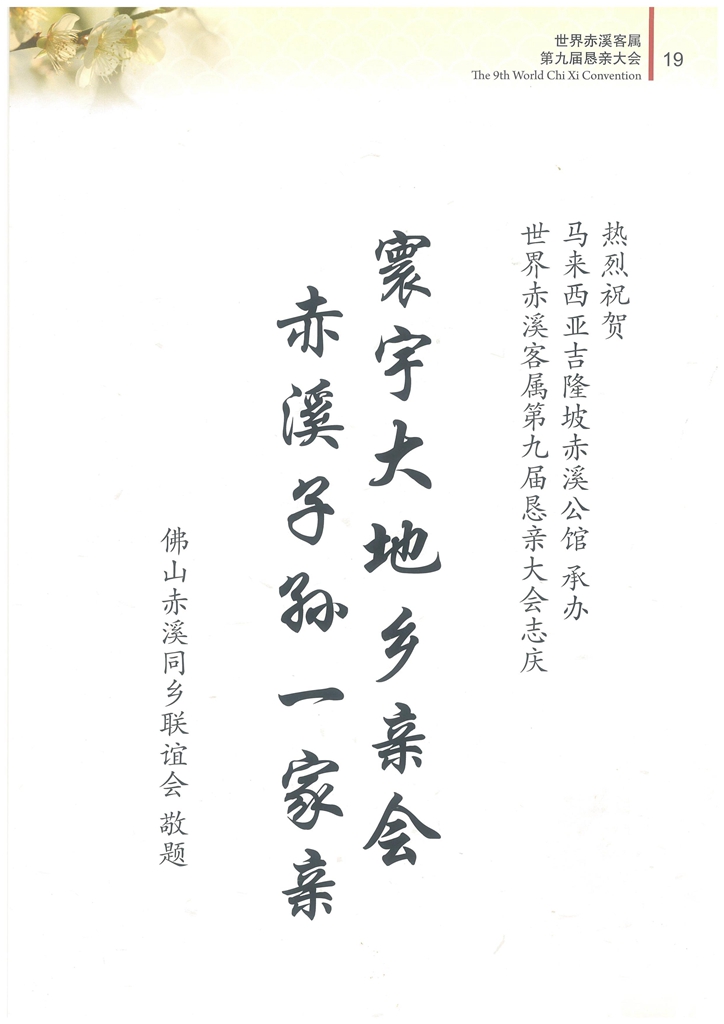 世界赤溪客属
第九届恳亲大会
The 9th World Chi Xi Convention
19
热烈祝贺
马来西亚吉隆坡赤溪公馆 承办
世界赤溪客属第九届恳亲大会志庆
寰宇大地乡亲会
赤溪子孙一家亲
佛山赤溪同乡联谊会 敬题